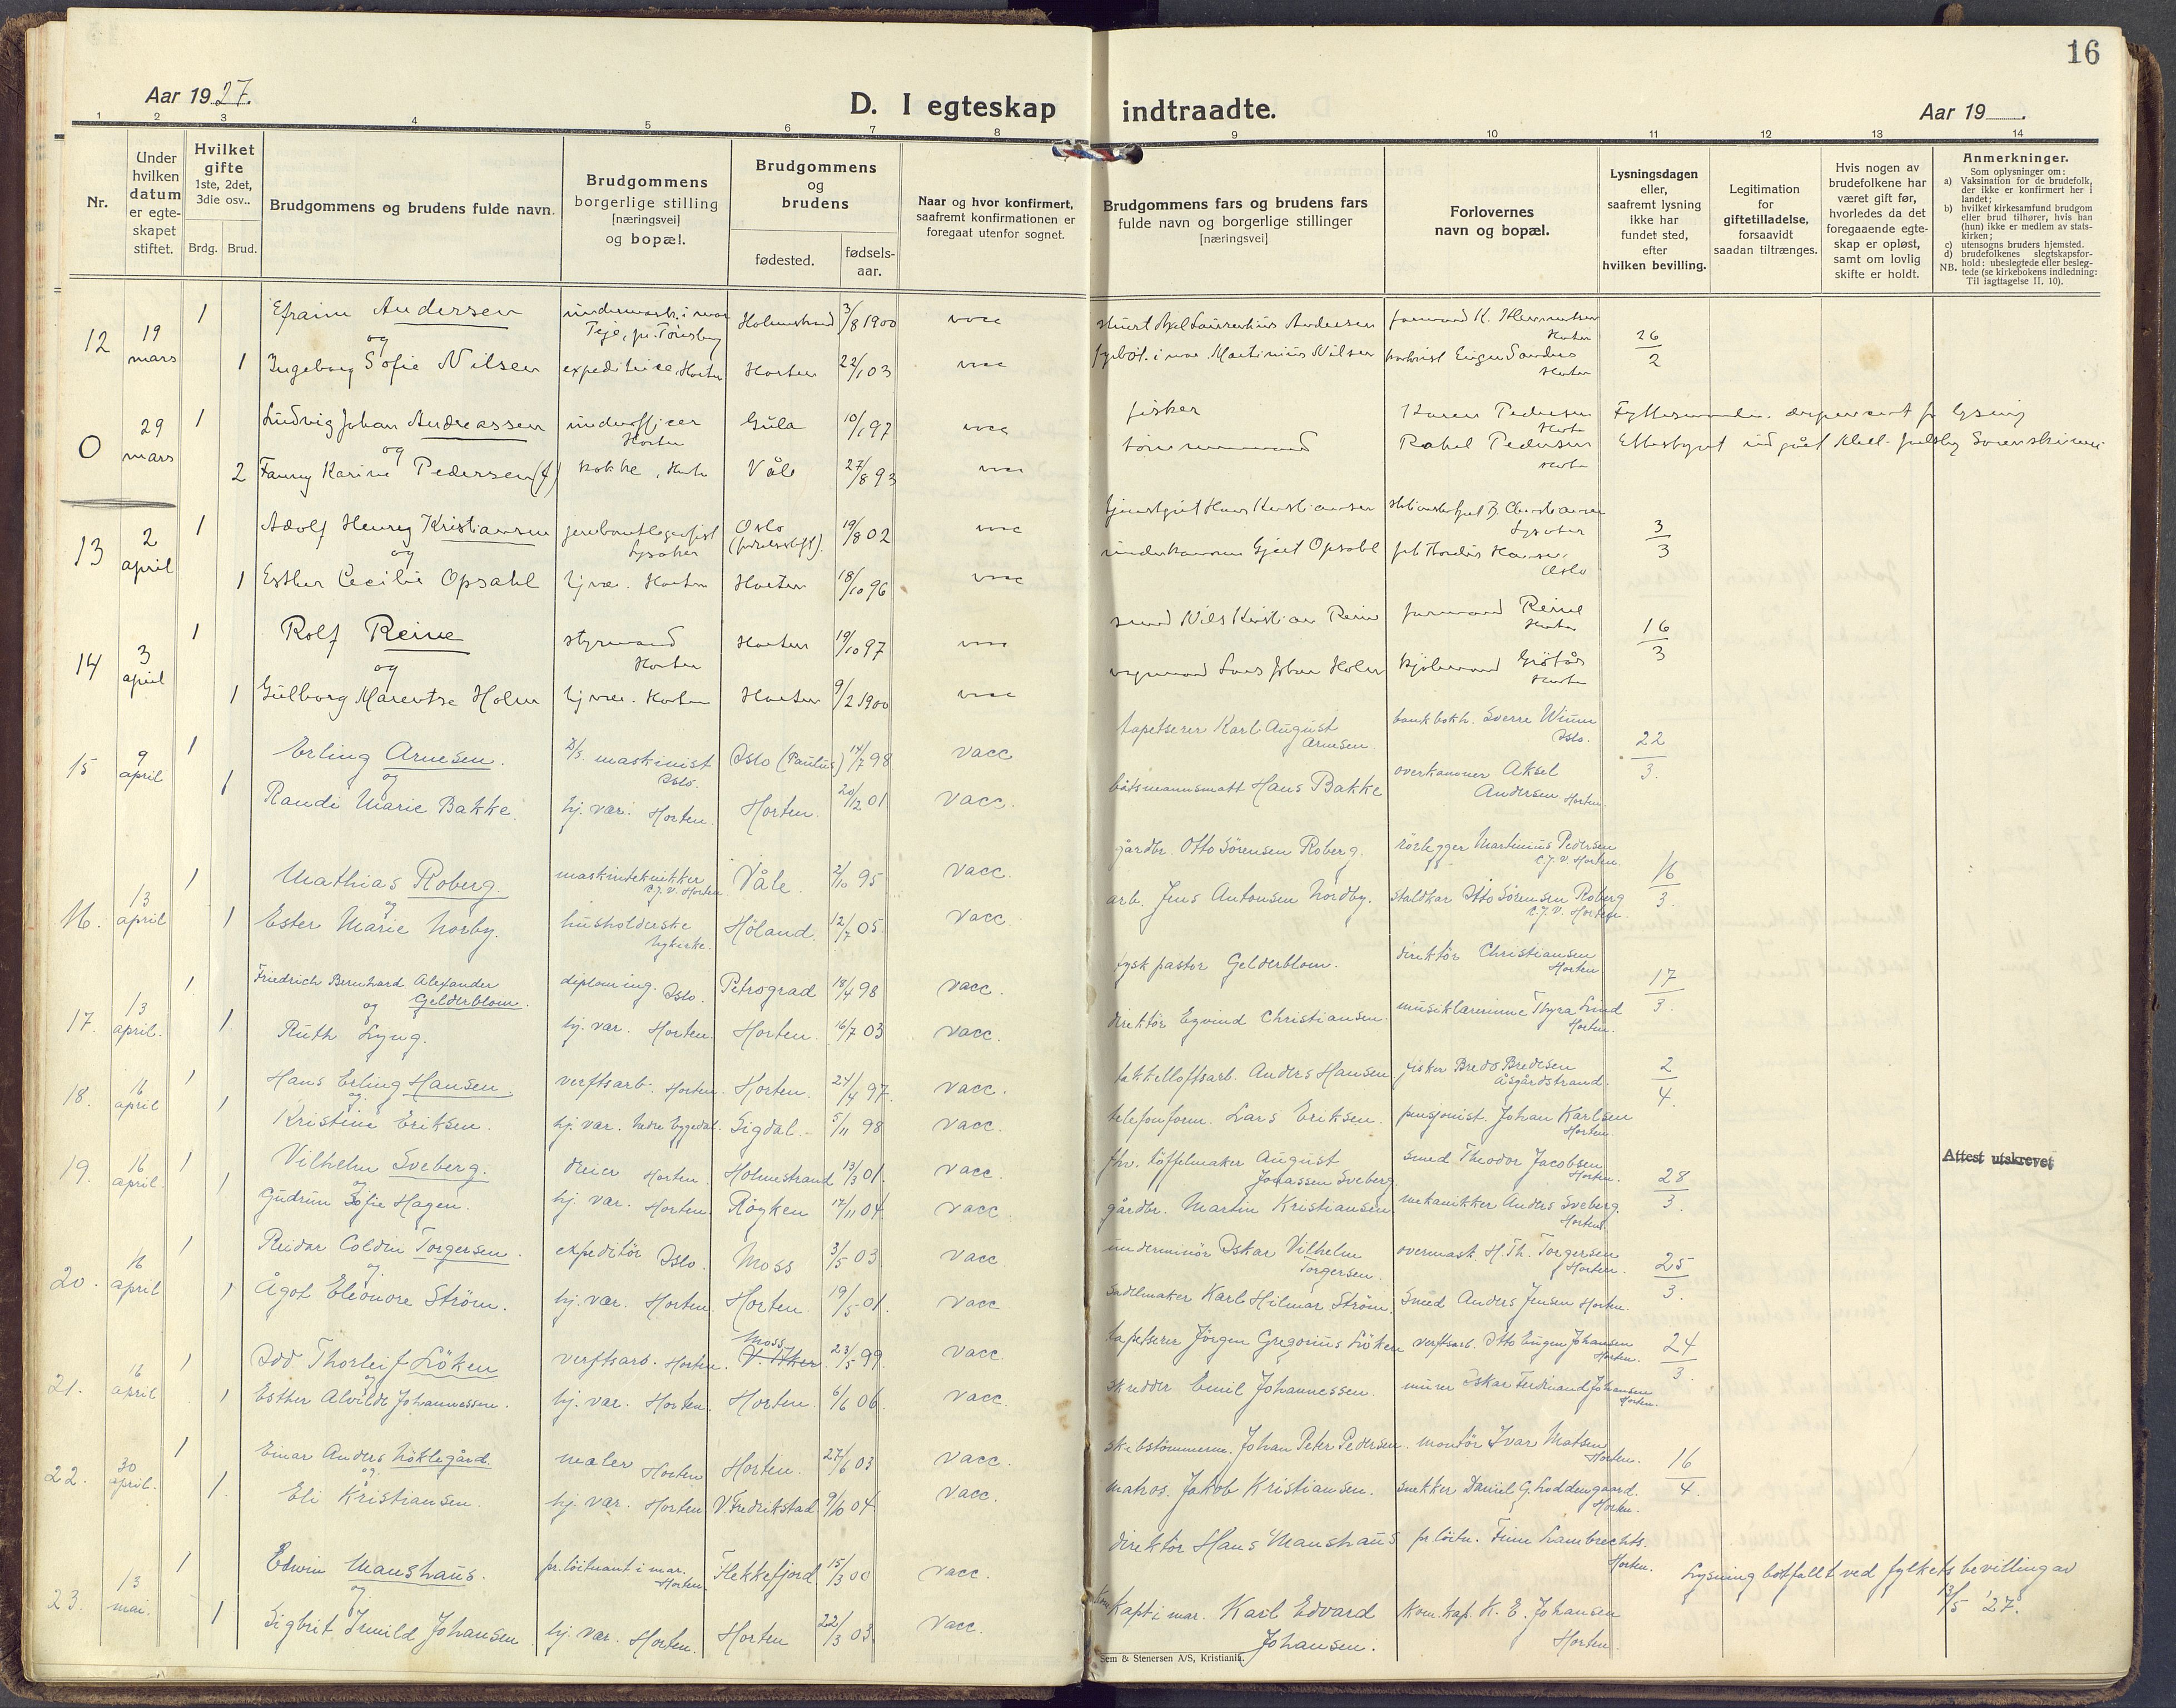 16
Aar 19 27.
D. I egteskap indtraadte.
Aar 19
1 2 3 4 5 6 7 8 9 10 11 12 13 14
Nr.
Under
hvilken
datum
er egte-
skapet
stiftet.
Hvilket
gifte
1ste, 2det,
3die osv..
Brdg. Brud.
Brudgommens og brudens fulde navn.
Brudgommens
borgerlige stilling
[næringsvei]
og bopæl.
Brudgommens
og
brudens
fødested.
fødsels-
aar.
Naar og hvor konfirmert,
saafremt konfirmationen er
foregaat utenfor sognet.
Brudgommens fars og brudens fars
fulde navn og borgerlige stillinger
[næringsvei]
Forlovernes
navn og bopæl.
Lysningsdagen
eller,
saafremt lysning
ikke har
fundet sted,
efter
hvilken bevilling.
Legitimation
for
giftetilladelse,
forsaavidt
saadan tiltrænges.
Hvis nogen av
brudefolkene har
været gift før,
hvorledes da det
foregaaende egte-
skap er opløst,
samt om lovlig
skifte er holdt.
Anmerkninger.
Som oplysninger om:
a) Vaksination for de brudefolk,
der ikke er konfirmert her i
landet;
b) hvilket kirkesamfund brudgom
eller brud tilhører, hvis han
(hun) ikke er medlem av stats-
kirken;
c) utensogns bruders hjemsted.
d) brudefolkenes slegtskapsfor-
hold: ubeslegtede eller besleg-
NB. tede (se kirkebokens indledning:
Til iagttagelse II. 10).
12 19 mars 1 Efraim Andersen Holmestrand 3/8 1900 vacc Axel Laurentius Andersen Horten 26/2
og Teje, pr. Tönsberg
1 Ingeborg Sofie Nilsen expeditrice Horten Horten 22/1 03 vacc Martinius Nilsen Horten
0 29 mars 1 Ludvig Johan Andreassen underofficer Horten Gula 10/1 97 vacc fisker Karen Pedersen Horten
og
2 Fanny Karine Pedersen (f) kokke, Horten Våle 27/8 93 vacc tömmermand Rakel Pedersen Horten
13 2 april 1 Adolf Henry Kristiansen Lysaker Oslo 19/8 02 vacc Hans Kristiansen Lysaker 3/3
og
1 Esther Cecilie Opsahl hj. vær. Horten Horten 18/10 96 vacc underkanoner Gjert Opsahl Oslo
14 3 april 1 Rolf Reine styrmand Horten Horten 19/10 97 vacc smed Nils Kristian Reine Reine Horten 16/3
og
1 Gulborg Marentse Holm hj. vær. Horten Horten 9/2 1900 vacc Lars Johan Holm Horten
15 9 april 1 Erling Arnesen. D/S. maskinist Oslo. Oslo (Paulus) 14/7 98 vacc tapetserer Karl August Arnesen bankbokh. Sverre Winn Oslo. 22/3.
og
1 Randi Marie Bakke. hj. vær. Horten. Horten. 20/2 01 vacc. båtsmannsmatt Hans Bakke overkanoner Aksel Andersen Horten.
16. 13 april 1 Mathias Roberg. maskintekniker C.J.V. Horten. Våle. 2/10 95 vacc. gårdbr. Otto Sörensen Roberg. rörlegger Martinius Pedersen C.J.V. Horten. 16/3.
og
1 Ester Marie Norby. husholderske Nykirke. Höland. 12/7 05. vacc. arb. Jens Antonsen Nordby. staldkar Otto Sörensen Roberg C.J.V. Horten.
17. 13 april. 1 Friedrich Bernhard Alexander Gelderblom. diplom ing. Oslo. Petrograd 18/4 98 vacc. tysk pastor Gelderblom. direktör Christiansen Horten 17/3.
og
1 Ruth Lyng. hj. vær. Horten. Horten. 16/7 03 vacc. direktör Eyvind Christiansen. musiklærerinne Thyra Lind Horten.
18. 16 april 1 Hans Erling Hansen verftsarb. Horten. Horten. 24/4 97. vacc. takkelloftsarb. Anders Hansen fisker Bredo Bredesen Åsgårdstrand. 2/4.
og
1 Kristine Eriksen. hj. vær. Nedre Eggedal. Sigdal. 5/11 98 vacc. telefonform. Lars Eriksen. pensjonist. Johan Karlsen Horten.
19. 16 april. 1 Vilhelm Sveberg. Horten. Holmestrand 13/3 01. vacc. fhv. töffelmaker August Jonassen Sveberg. smed Theodor Jacobsen Horten. 28/3. Attest utskrevet
og
1 Gudrun Sofie Hagen. hj. vær. Horten. Röyken 17/11 04. vacc. gårdbr. Martin Kristiansen mekanikker Anders Sveberg. Horten.
20. 16 april 1 Reidar Coldin Torgersen. expeditör Oslo. Moss 3/5 03. vacc. underminör Oskar Vilhelm Torgersen. overmask. H. Th. Torgersen Horten. 25/3.
og.
1 Ågot Eleonore Ström. hj. vær. Horten. Horten. 19/5 01. vacc sadelmaker Karl Hilmar Ström. Smed Anders Jensen Horten.
21. 16 april 1 Odd Thorleif Löken verftsarb. Horten. Moss V. Aker 23/5 99 vacc. tapetserer Jörgen Gregorius Löken verftsarb. Otto Eugen Johansen Horten. 24/3.
og
1 Esther Alvilde Johannessen. hj. vær. Horten. Horten. 6/6 06. vacc. skredder Emil Johannessen. murer Oskar Ferdinand Johansen Horten.
22. 30 april. 1 Einar Anders Nöklegård. maler Horten Horten. 27/6 03 vacc. skibstömmerm. Johan Peter Pedersen. montör Ivar Matsen Horten. 16/4.
og.
1. Eli Kristiansen. hj. vær. Horten V. Fredrikstad 9/10 04. vacc. matros. Jakob Kristiansen. snekker Daniel G. Loddengaard. Horten.
23. 13 mai. 1 Edwin Manshaus. pr. löitnant i mar. Horten. Flekkefjord 15/3 00 vacc. direktör Hans Manshaus pr. löitn. Finn Lambrechts. Horten. Lysning bortfallt ved fylkets bevilling av 13/5 '27.
og.
1 Sigbrit Irmild Johansen. hj. vær. Horten. Horten 22/3 03. vacc. Kapt. i mar. Karl Edvard Johansen. Kom. kap. K. E. Johansen Horten.
Sem & Stenersen A/S, Kristiania.